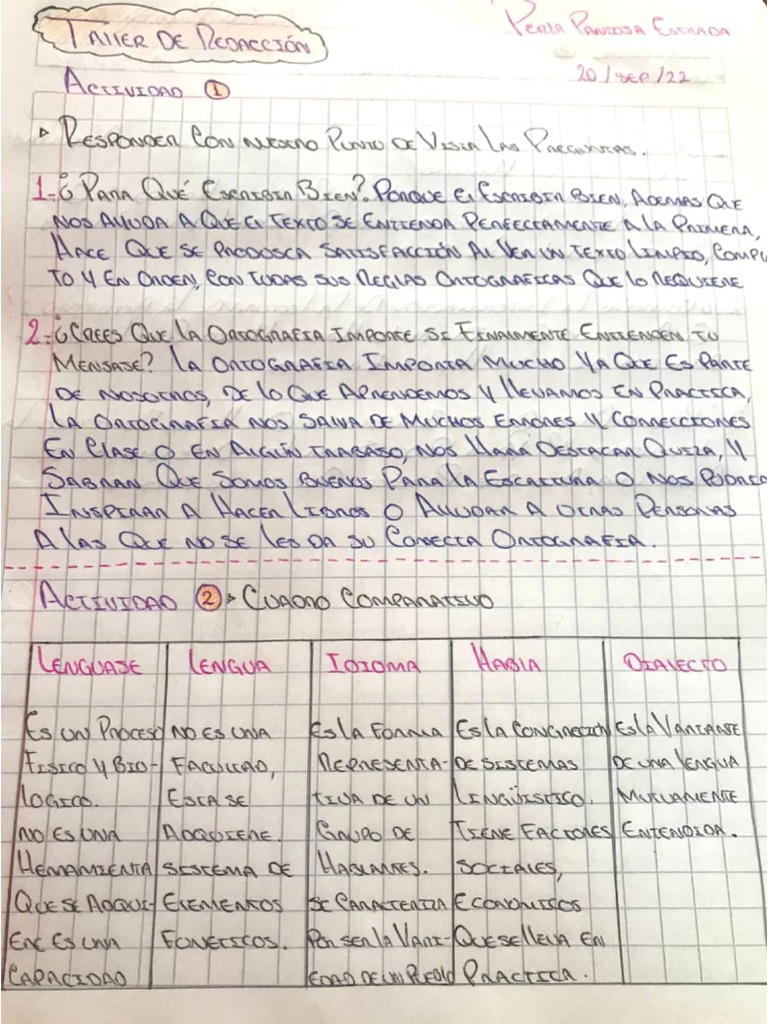 TALLER DE REDACCIÓN
PERLA PANTOJA ESTRADA
20/SEP/22
ACTIVIDAD ①
▹ RESPONDER CON NUESTRO PUNTO DE VISTA LAS PREGUNTAS.
1-¿PARA QUÉ ESCRIBIR BIEN?. PORQUE EL ESCRIBIR BIEN, ADEMAS QUE
NOS AYUDA A QUE EL TEXTO SE ENTIENDA PERFECTAMENTE A LA PRIMERA,
HACE QUE SE PRODOSCA SATISFACCIÓN AL VER UN TEXTO LIMPIO, COMPL
TO Y EN ORDEN, CON TODAS SUS REGLAS ORTOGRAFICAS QUE LO REQUIERE
2-¿CREES QUE LA ORTOGRAFIA IMPORTE SI FINALMENTE ENTIENDEN TU
MENSAJE? LA ORTOGRAFIA IMPORTA MUCHO YA QUE ES PARTE
DE NOSOTROS, DE LO QUE APRENDEMOS Y LLEVAMOS EN PRACTICA,
LA ORTOGRAFIA NOS SALVA DE MUCHOS ERRORES Y CORRECCIONES
EN CLASE O EN ALGÚN TRABAJO, NOS HARÁ DESTACAR QUIZA, Y
SABRAN QUE SOMOS BUENOS PARA LA ESCRITURA O NOS PODRIA
INSPIRAR A HACER LIBROS O AYUDAR A OTRAS PERSONAS
A LAS QUE NO SE LES DA SU CORECTA ORTOGRAFIA.
ACTIVIDAD ② ▹ CUADRO COMPARATIVO
LENGUAJE LENGUA IDIOMA HABLA DIALECTO
ES UN PROCESO NO ES UNA ES LA FORMA ES LA CONCRECION ES LA VARIANTE
FISICO Y BIO- FACULTAD, REPRESENTA- DE SISTEMAS DE UNA LENGUA
LOGICO. ESTA SE TIVA DE UN LINGÜISTICO. MUTUAMENTE
NO ES UNA ADQUIERE. GRUPO DE TIENE FACTORES ENTENDIDA.
HERRAMIENTA SISTEMA DE HABLANTES. SOCIALES,
QUE SE ADQUI- ELEMENTOS SE CARACTERIZA ECONOMICOS
ERE ES UNA FONETICOS. POR SER LA VARI- QUE SE LLEVA EN
CAPACIDAD EDAD DE UN PUEBLO PRACTICA.